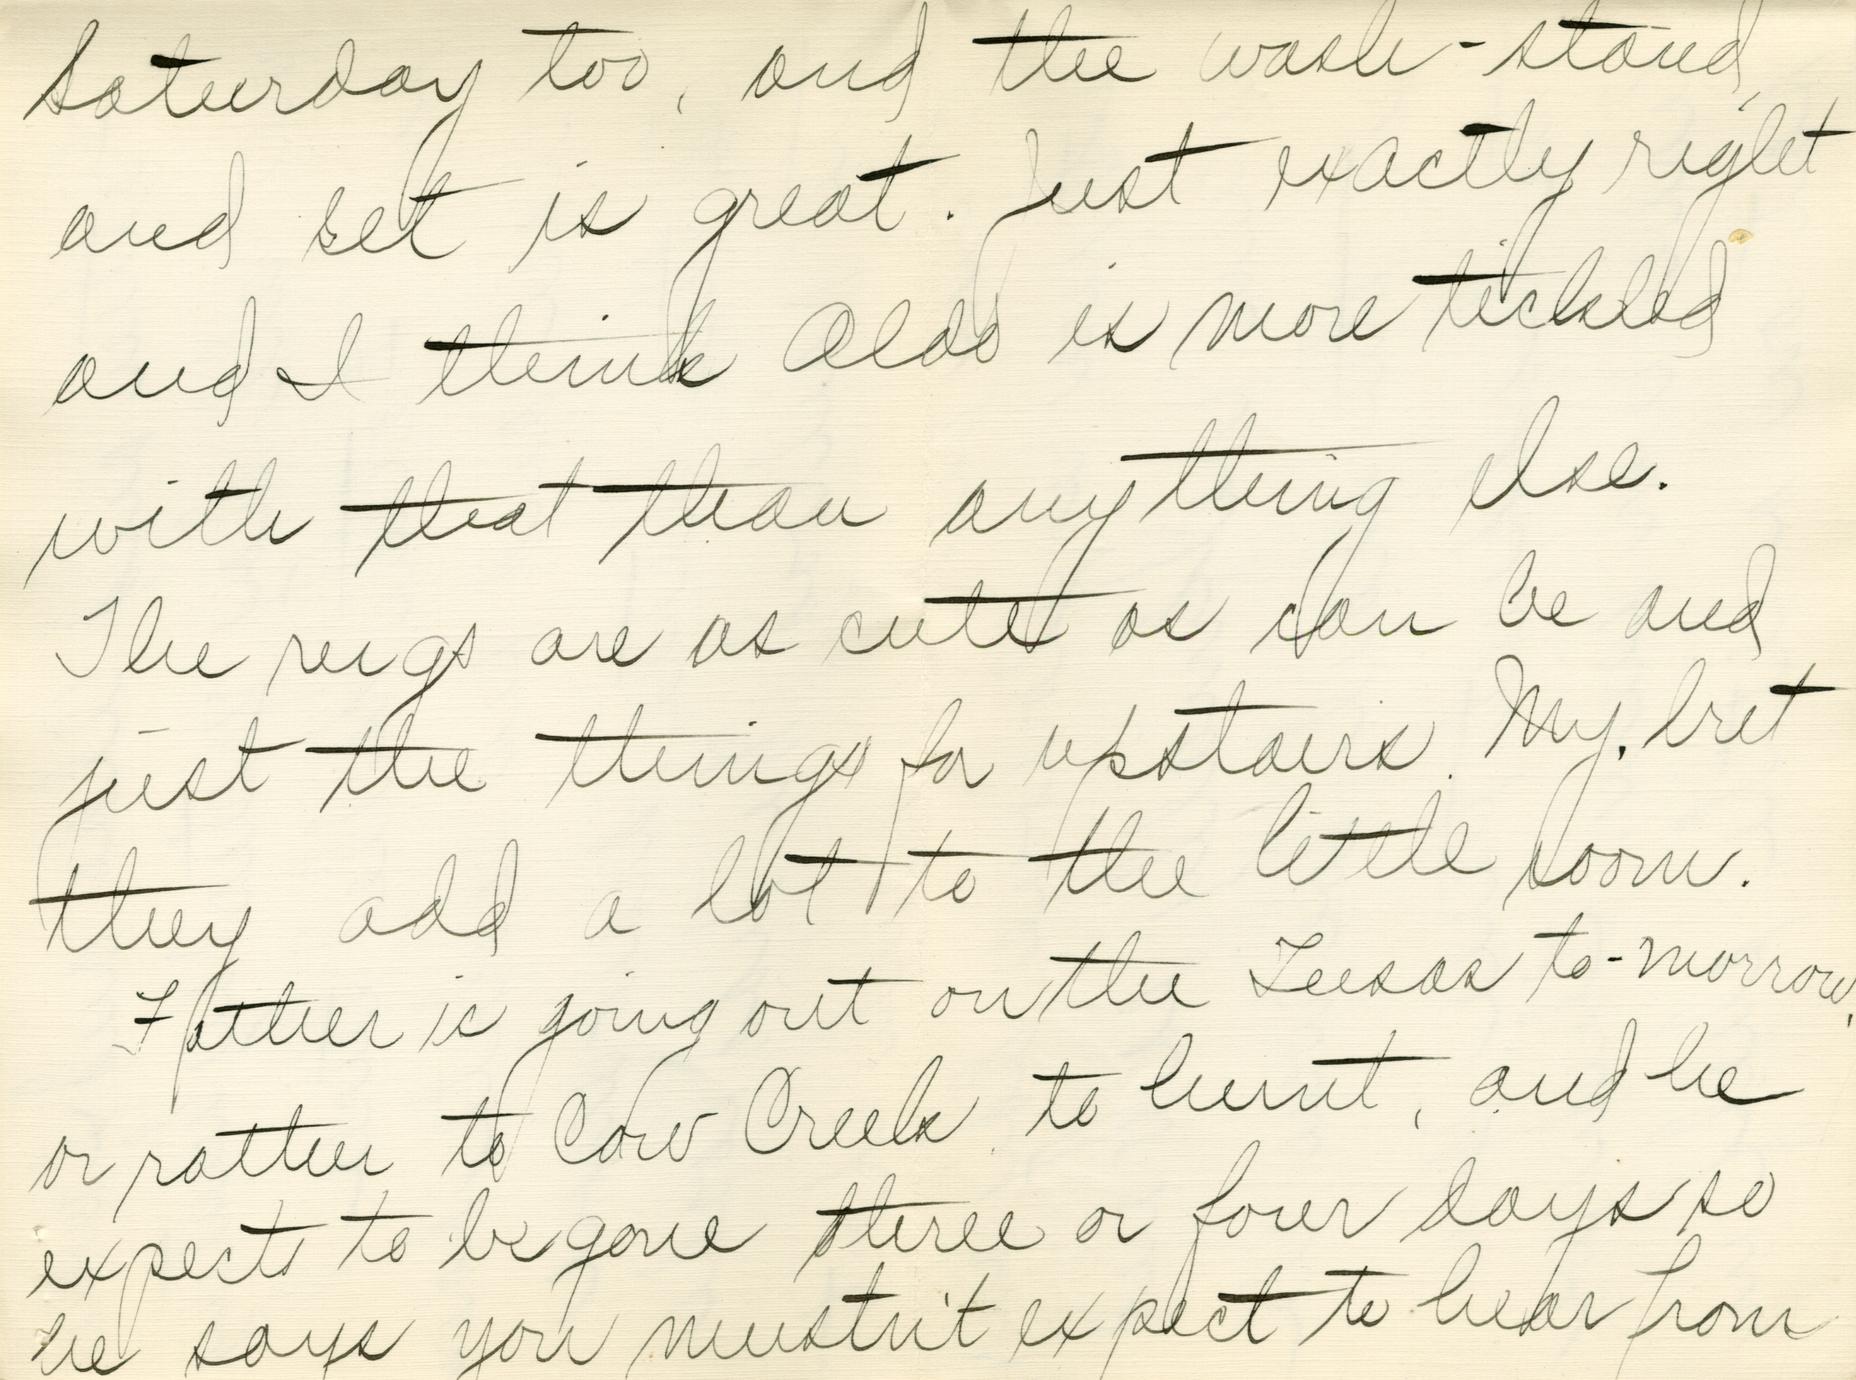 Saturday too, and the wash-stand,
and set is great. Just exactly right
and I think Aldo is more tickled
with that than anything else.
The rugs are as cute as can be and
just the things for upstairs. My, but
they add a lot to the little room.
Father is going out on the Tusas to-morrow,
or rather to Cow Creek to hunt, and he
expects to be gone three or four days so
he says you mustn't expect to hear from